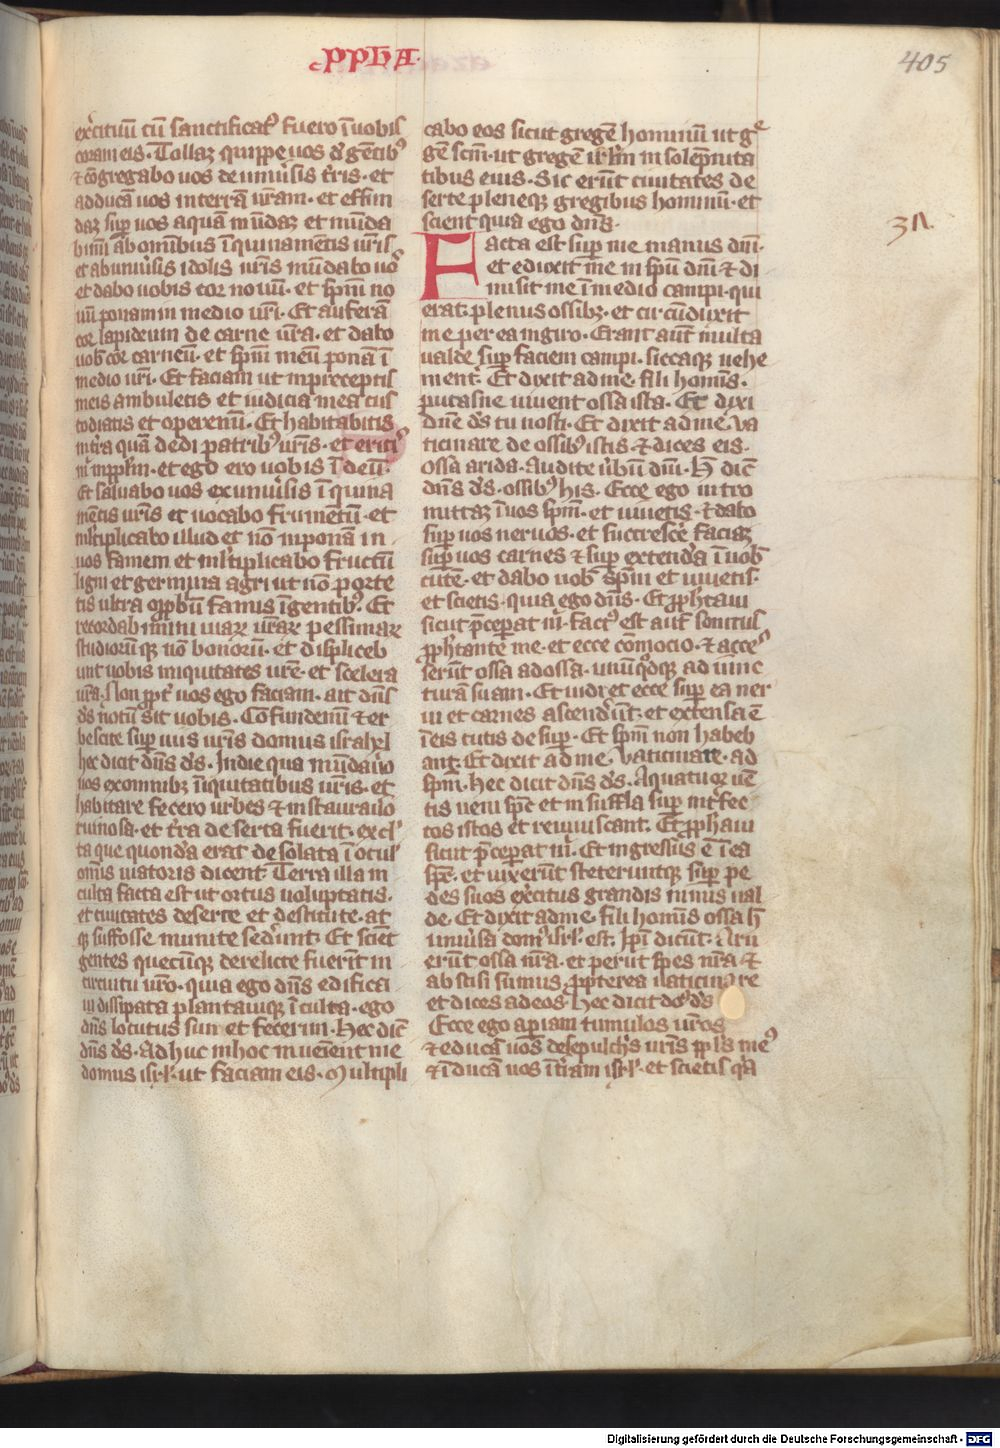 PPHA
405
exẻcituū cū sanctificat᷒ fuero ī uobis
coram eis. Tollaꝫ quippe uos d̓ gētib᷒
⁊ ꝯgregabo uos de uniu̓sis t̓ris. et
adducā uos in terrā ur̄am. et effun
daꝫ sup̱ uos aquā mūdaꝫ et mūda
bimī ab omnibus īquinamētis ur̄is
et ab uniu̓sis idolis ur̄is mūdabo uo᷒
et dabo uobis cor nouū. et sp̄m no
uū ponam in medio ur̄i. Et auferā
cor lapideum de carne ur̄a. et dabo
uob̄ cor carneū. et sp̄m meū ponā ī
medio ur̄i. Et faciam ut in preceptis
meis ambuletis et iudicia mea cus
todiatis et operemī. Et habitabitis
in t̓ra quā dedi patrib᷒ ur̄is. et eritis
m̄ in ppl̄m. et ego ero uobis ī deū.
Et saluabo uos ex uniu̓sis īquina
mētis ur̄is et uocabo frumētū. et
ml̄tiplicabo illud et nō inponā in
uos famem et ml̄tiplicabo fructū
ligni et germina agri ut nō porte
tis ultra opp̱bū famis ī gentib᷒. Et
recordabimini uiaꝝ ur̄aꝝ pessimaꝝ
studiorūqꝫ nō bonorū. et displiceb
unt uobis iniquitates ur̄e. et scelera
ur̄a. Non ꝓpt̓ uos ego faciam. ait dn̄s
d̄s notū sit uobis. Cōfundemī ⁊ er
bescite sup̱ uiis ur̄is domus israhel
hec dicit dn̄s d̄s. In die qua mūdau̓o
uos ex omnibꝫ īiquitatibus ur̄is. et
habitare fecero urbes ⁊ instaurauo
ruinosa. et t̓ra deserta fuerit excl᷒
ta que quond̓a erat desolata ī ocul᷒
omīs uiatoris dicent. Terra illa in
culta facta est ut ortus uoluptatis.
et ciuitates deserte et destitute. at
qꝫ suffosse munite sed̓unt. Et sciēt
gentes quecūqꝫ derelicte fuerit in
circuitu ur̄o. quia ego dn̄s edifica
ui dissipata plantauiqꝫ īculta. ego
dn̄s locutus sum et fecerim. Hec dic̄
dn̄s d̄s. Adhuc in hoc inueient me
domus isr̄l. ut faciam eis. Multipli
cabo eos sicut gregē hominū ut g̓
gē scm̄. ut gregē irl̄m in solēpnita
tibus eius. Sic erūt ciuitates de
serte pleneqꝫ gregibus hominū. et
scient quia ego dn̄s.
37.
Facta est sup̱ me manus dn̄i.
et eduxit me in sp̄u dn̄i ⁊ di
misit me ī medio campi. qui
erat plenus ossibꝫ. et circūduxit
me per ea in giro. Erant aūt multa
ualde sup̱ faciem campi. siccaqꝫ uehe
ment̓. Et dixit ad me. fili homīs.
putasne uiuent ossa ista. Et dixi
dn̄e d̄s tu nosti. Et dixit ad me. Va
ticinare de ossib᷒ istis. ⁊ dices eis.
Ossa arida. Audite u̓bū dn̄i. H̄ dic̄
dn̄s d̄s. ossib᷒ his. Ecce ego intro
mittaꝫ ī uos sp̄m. et uiuetis. ⁊ dabo
sup̱ uos neruos. et succresce̓ faciaꝫ
sup̱ uos carnes ⁊ sup̱ extend̓a ī uob̄
cutē. et dabo uob̄ sp̄m et uiuetis.
et scietis. quia ego dn̄s. Et ꝓph̄taui
sicut p̄ceperat m̄. fact᷒ est aūt sonitus
ꝓph̄tante me. et ecce cōmocio. ⁊ acce᷒
serūt ossa ad ossa. unūq̊dqꝫ ad iūnc
turā suam. Et uidi et ecce sup̱ ea ner
ui et carnes ascend̓ūt. et extensa ē
ī eis cutis desup̱. Et sp̄m non habeb
ant. Et dixit ad me. Vaticinare. ad
sp̄m. Hec dicit dn̄s d̄s. A quatuoꝝ uē
tis ueni sp̄c et insuffla sup̱ int̓fec
tos istos et reuiuiscant. Et ꝓphaui
sicut p̄ceperat m̄. Et ingressus ē ī ea
sp̄c. et uixerūt steteruntqꝫ sup̱ pe
des suos exẻcitus grandis nimis ual
de. Et dixit ad me. fili homīs ossa h̄
uniu̓sa dom᷒ isr̄l. est. Ip̄i dicūt. Aru
erūt ossa nr̄a. et periit sp̱es nr̄a ⁊
abscisi sumus ꝓpterea uaticinare
et dices ad eos. Hec dicit dn̄s d̄s
Ecce ego aperiam tumulos ur̄os
⁊ educā uos de sepulch̓s ur̄is ppl̄s me᷒
⁊ īducā uos ī t̓ram isr̄l. et scietis qa
Digitalisierung gefördert durch die Deutsche Forschungsgemeinschaft - DFG